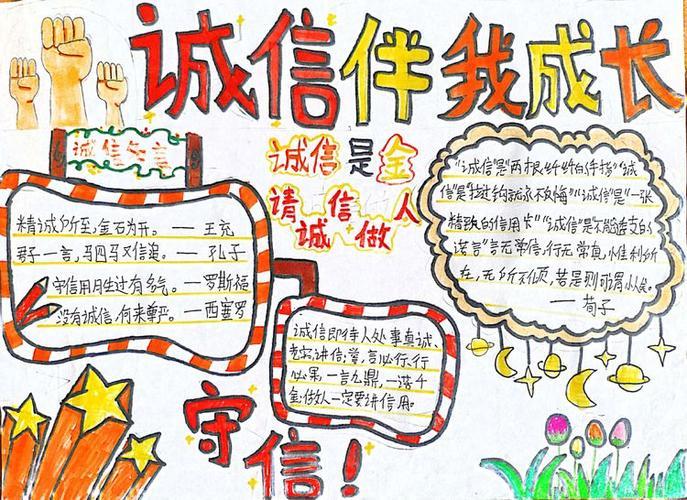 诚信伴我成长
诚信名言
诚信是金
请诚信做人
精诚所至,金石为开。— 王充
君子一言,驷马难追。— 孔子
守信用胜过有名气。— 罗斯福
没有诚信,何来尊严。— 西塞罗
"诚信"是"两根纤纤的手指""诚
信"是"拉过钩就永不反悔""诚信"是"一张
精致的信用卡""诚信"是"不能透支的
诺言"言无常信,行无常真,惟利所
在,无所不倾,若是则可谓小人矣。
— 荀子
诚信即待人处事真诚、
老实、讲信誉,言必行、行
必果,一言九鼎,一诺千
金。做人一定要讲信用。
守信!